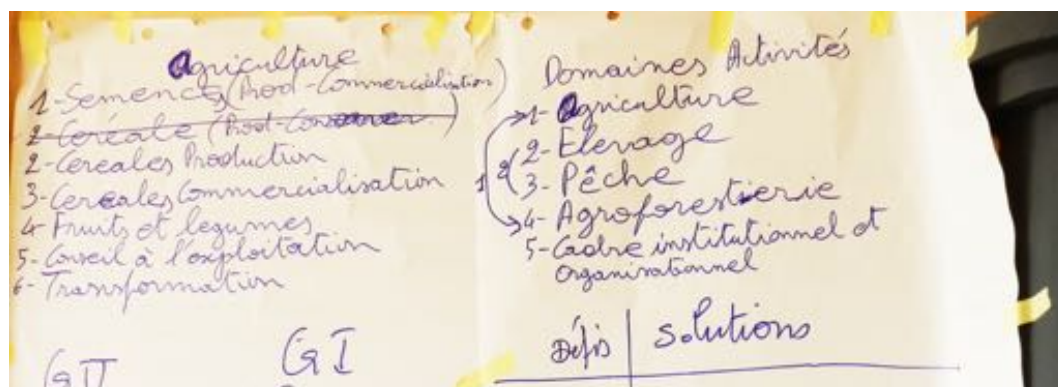 Agriculture
1-Semences (Prod-Commercialisation)
2-Céréale (Prod-Conser)
2-Cereales Production
3-Cereales Commercialisation
4-Fruits et legumes
5-Conseil à l'exploitation
6-Transformation
GII
GI
Domaines Activités
1-Agriculture
2-Elevage
3-Pêche
4-Agroforestierie
5-Cadre institutionnel et
organisationnel
1
2
Défis
Solutions